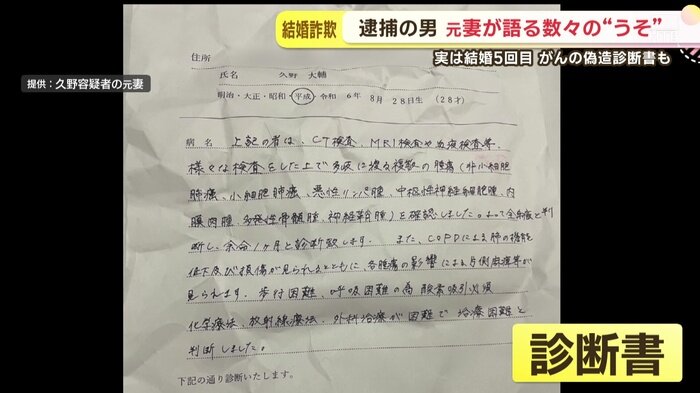 結婚詐欺 逮捕の男 元妻が語る数々の“うそ”
実は結婚5回目 がんの偽造診断書も
提供：久野容疑者の元妻
住所
氏名 久野 大輔
明治・大正・昭和・平成・令和 6年 8月 28日生 (28才)
病名 上記の者は、CT検査、MRI検査や血液検査等、
様々な検査をした上で多岐に渡る複数の腫瘍(非小細胞
肺癌、小細胞肺癌、悪性リンパ腫、中枢性神経細胞腫、内
膜肉腫、多発性骨髄腫、神経鞘腫)を確認しました。よって全身癌と判
断し、余命1ヶ月と診断致します. また、COPDによる肺の機能
低下及び損傷が見られるとともに、各腫瘍の影響による片側麻痺等が
見られます. 歩行困難、呼吸困難の為 酸素吸引必須
化学療法、放射線療法、外科治療が困難で治療困難と
判断しました。
下記の通り診断いたします。
診断書